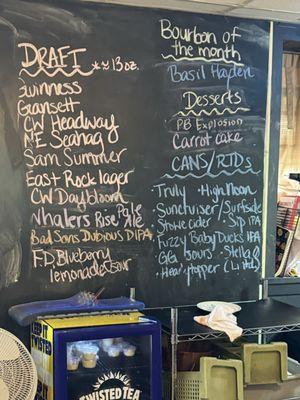 DRAFT
* ≈ 13oz.
Guinness
Gansett
CW Headway
NE Seahag
Sam Summer
East Rock lager
CW Daybloom
Whalers Rise Pale
Pale
Bad Sons Dubious DIPA
FD Blueberry
lemonade sour
Bourbon of
the month
Basil Hayden
Desserts
PB Explosion
Carrot cake
CANS/RTDs
Truly · High Noon
Suncruiser/Surfside
Stowe Cider · Sip IPA
Fuzzy Baby Ducks IPA
GGI sours · Stella
· Heady Topper (Ltd)
KEEP IT
TWISTED
TWISTED TEA